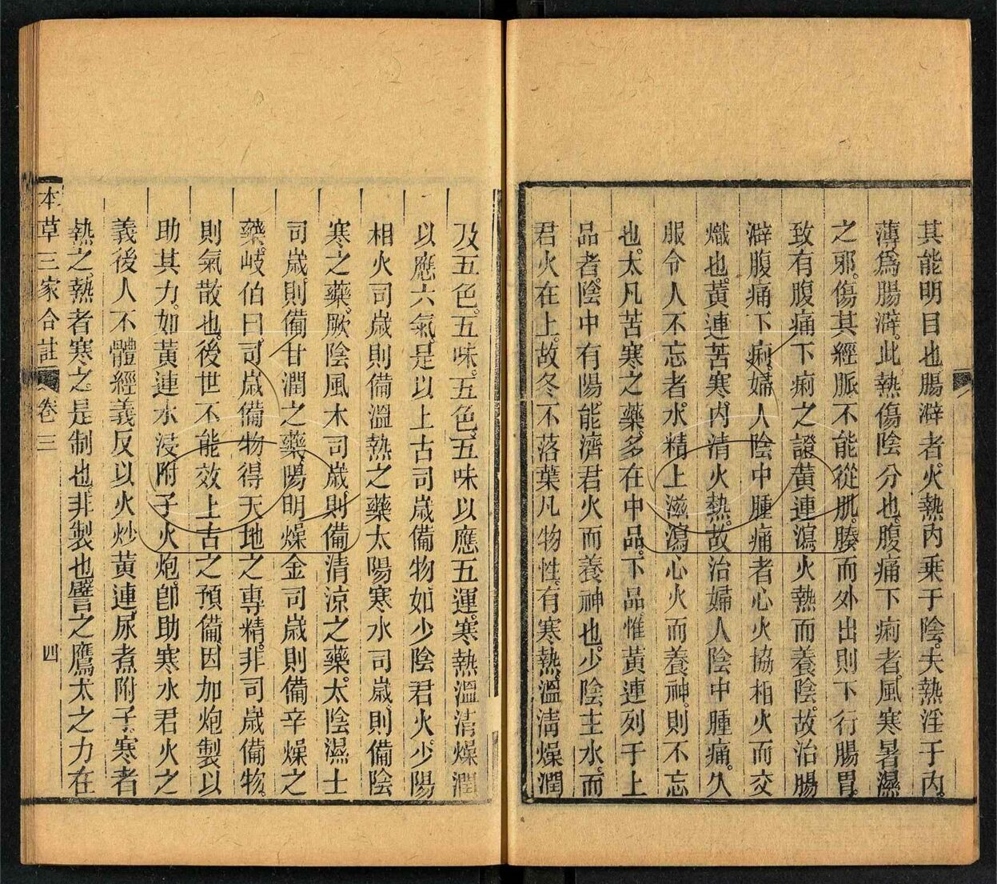 其能明目也腸澼者火熱內乗于陰夫熱淫于內
薄爲腸澼此熱傷陰分也腹痛下痢者風寒暑濕
之邪傷其經脈不能從肌腠而外出則下行腸胃
致有腹痛下痢之證黃連瀉火熱而養陰故治腸
澼腹痛下痢婦人陰中腫痛者心火協相火而交
熾也黃連苦寒內清火熱故治婦人陰中腫痛久
服令人不忘者水精上滋瀉心火而養神則不忘
也大凡苦寒之藥多在中品下品惟黃連列于上
品者陰中有陽能濟君火而養神也少陰主水而
君火在上故冬不落葉凡物性有寒熱溫清燥潤
及五色五味五色五味以應五運寒熱溫清燥潤
以應六氣是以上古司歲備物如少陰君火少陽
相火司歲則備溫熱之藥太陽寒水司歲則備陰
寒之藥厥陰風木司歲則備清涼之藥太陰濕土
司歲則備甘潤之藥陽明燥金司歲則備辛燥之
藥岐伯曰司歲備物得天地之專精非司歲備物
則氣散也後世不能效上古之預備因加炮製以
助其力如黃連水浸附子火炮卽助寒水君火之
義後人不體經義反以火炒黃連尿煮附子寒者
熱之熱者寒之是制也非製也譬之鷹犬之力在
本草三家合註 卷三 四